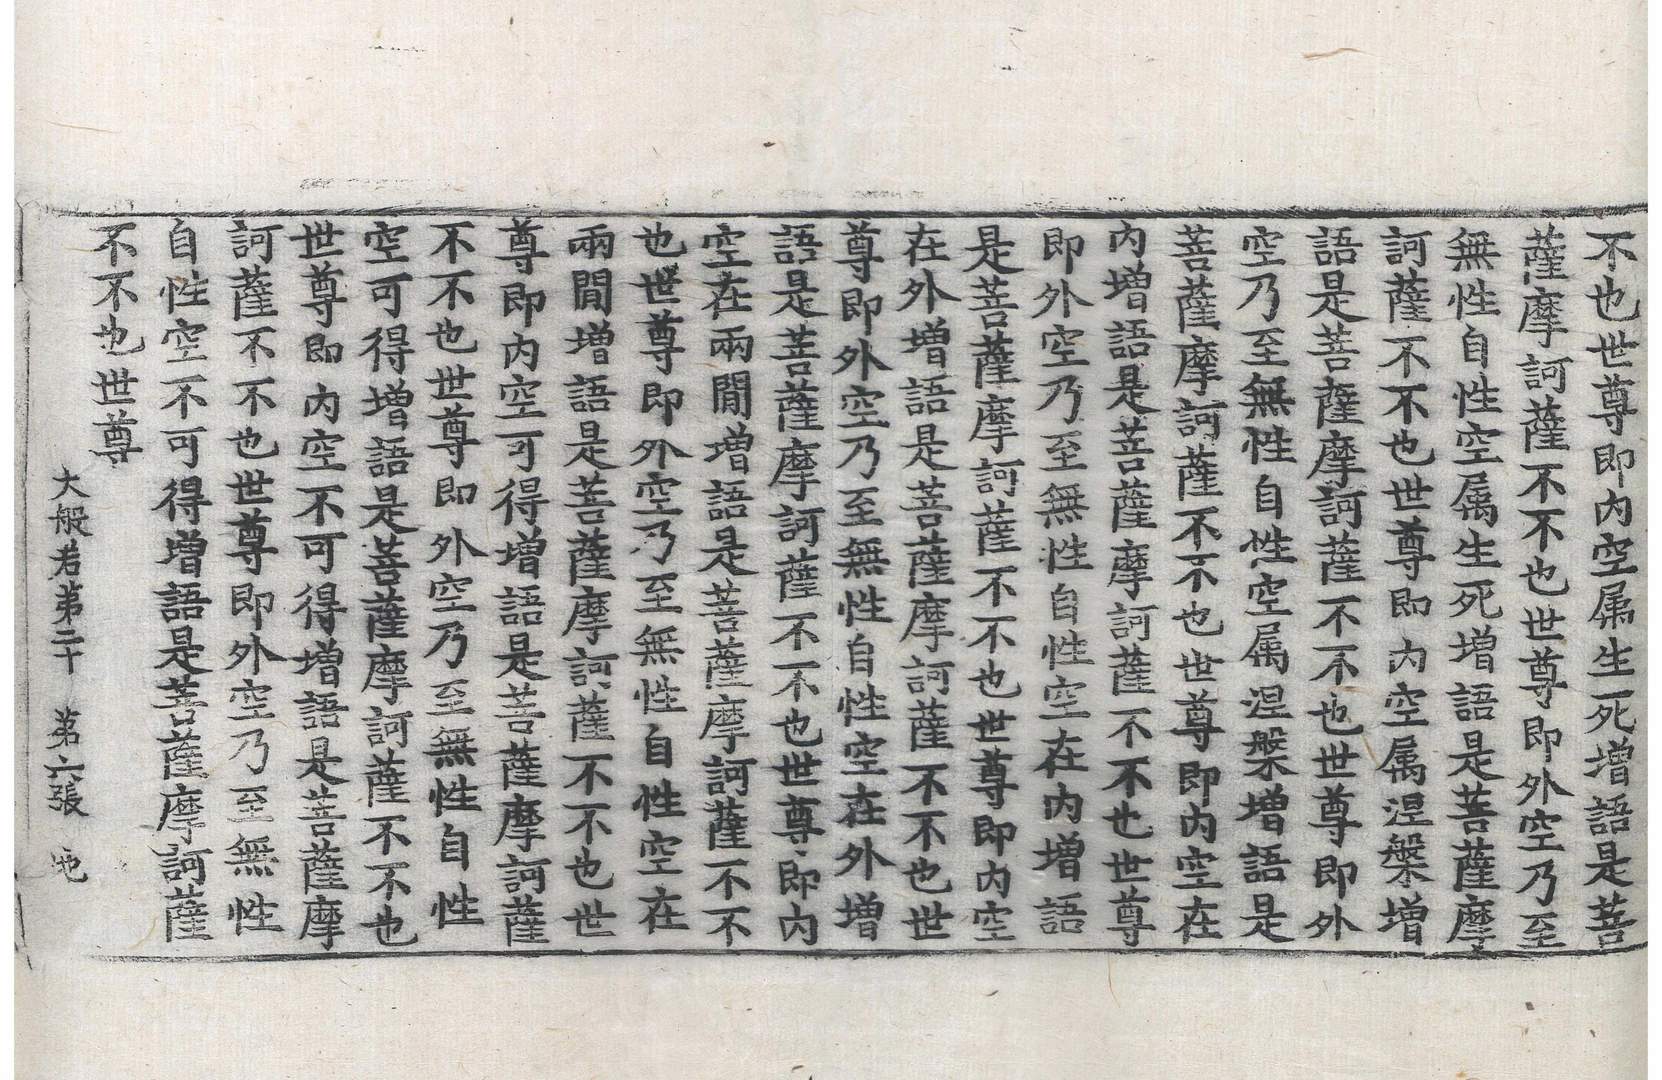 不也世尊即內空属生死增語是菩
薩摩訶薩不不也世尊即外空乃至
無性自性空属生死增語是菩薩摩
訶薩不不也世尊即內空属涅槃增
語是菩薩摩訶薩不不也世尊即外
空乃至無性自性空属涅槃增語是
菩薩摩訶薩不不也世尊即內空在
內增語是菩薩摩訶薩不不也世尊
即外空乃至無性自性空在內增語
是菩薩摩訶薩不不也世尊即內空
在外增語是菩薩摩訶薩不不也世
尊即外空乃至無性自性空在外增
語是菩薩摩訶薩不不也世尊即內
空在兩間增語是菩薩摩訶薩不不
也世尊即外空乃至無性自性空在
兩間增語是菩薩摩訶薩不不也世
尊即內空可得增語是菩薩摩訶薩
不不也世尊即外空乃至無性自性
空可得增語是菩薩摩訶薩不不也
世尊即內空不可得增語是菩薩摩
訶薩不不也世尊即外空乃至無性
自性空不可得增語是菩薩摩訶薩
不不也世尊
大般若第二十　第六張　地